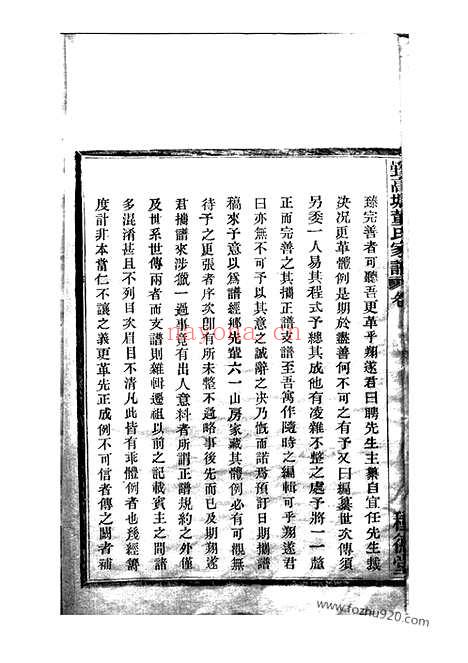 孫完善者可聽吾更革乎翔遂君曰聘先生主纂自宜任先生裁
決况更革體例是期於盡善何不可之有予又曰編纂世次傳須
另委一人易其程式予總其成他有凌雜不整之處予將一一釐
正而完善之其攜正譜支譜至吾寓作隨時之編輯可乎翔遂君
曰亦無不可予以其意之誠辭之決乃慨而諾焉預訂日期攜譜
稿來予意以爲譜經鄉先輩六一山房家藏其體例必有可觀無
待予之更張者序次即有所未整不過略事後先而已及期翔遂
君攜譜來涉獵一過事竟有出人意料者所謂正譜規約之外僅
及世系世傳兩者而支譜則雜輯遷祖以前之記載賓主之間諸
多混淆甚且不列目次眉目不清凡此皆有乖體例者也幾經籌
度計非本當仁不讓之義更革先正成例不可信者傳之闕者補
董氏家譜 卷
www.fozhu920.com
nayona.cn